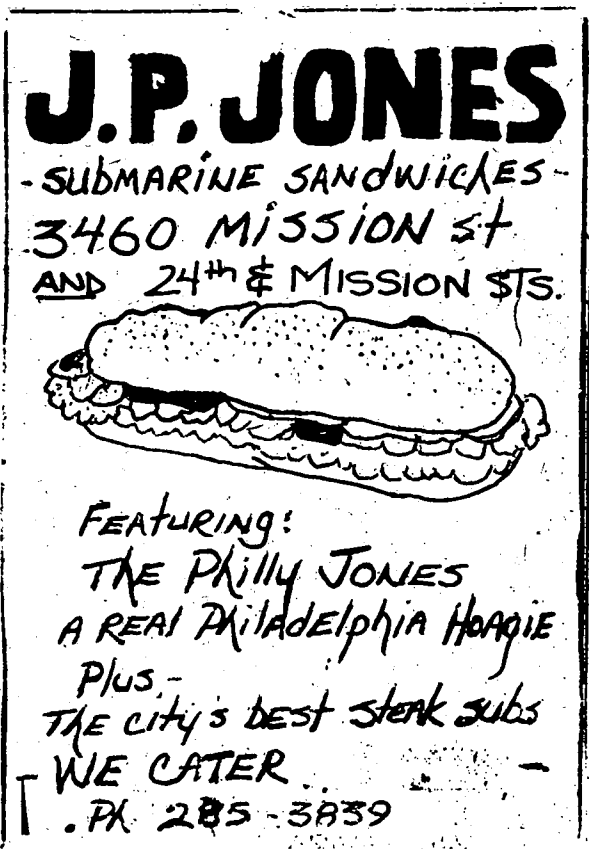 J.P. JONES
- SUbMARiNE SANdWiChES -
3460 MiSSiON St
AND 24th & MISSION STS.
FEAtURINg:
ThE Philly JONES
A REAl PhilAdElphiA HOAgIE
Plus,-
ThE city's bEst stEAk subs
WE CATER
. Ph 285-3839